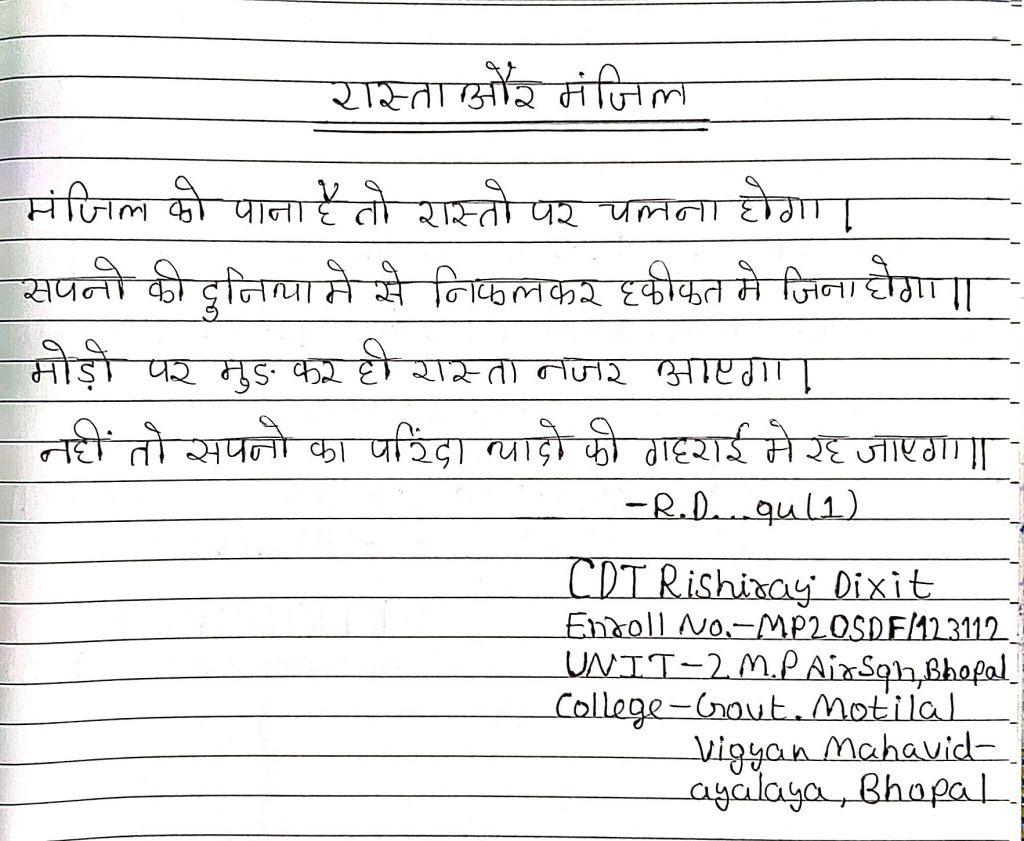 रास्ता और मंजिल
मंजिल को पाना है तो रास्तो पर चलना होगा।
सपनो की दुनिया मे से निकलकर हकीकत मे जिना होगा॥
मोड़ो पर मुड़ कर ही रास्ता नजर आएगा।
नहीं तो सपनो का परिंदा यादो की गहराई मे रह जाएगा॥
-R.D...qu(1)
CDT Rishiraj Dixit
Enroll No.-MP20SDF/123112
UNIT-2 M.P Air Sqn, Bhopal
College-Govt. Motilal
Vigyan Mahavid-
ayalaya, Bhopal